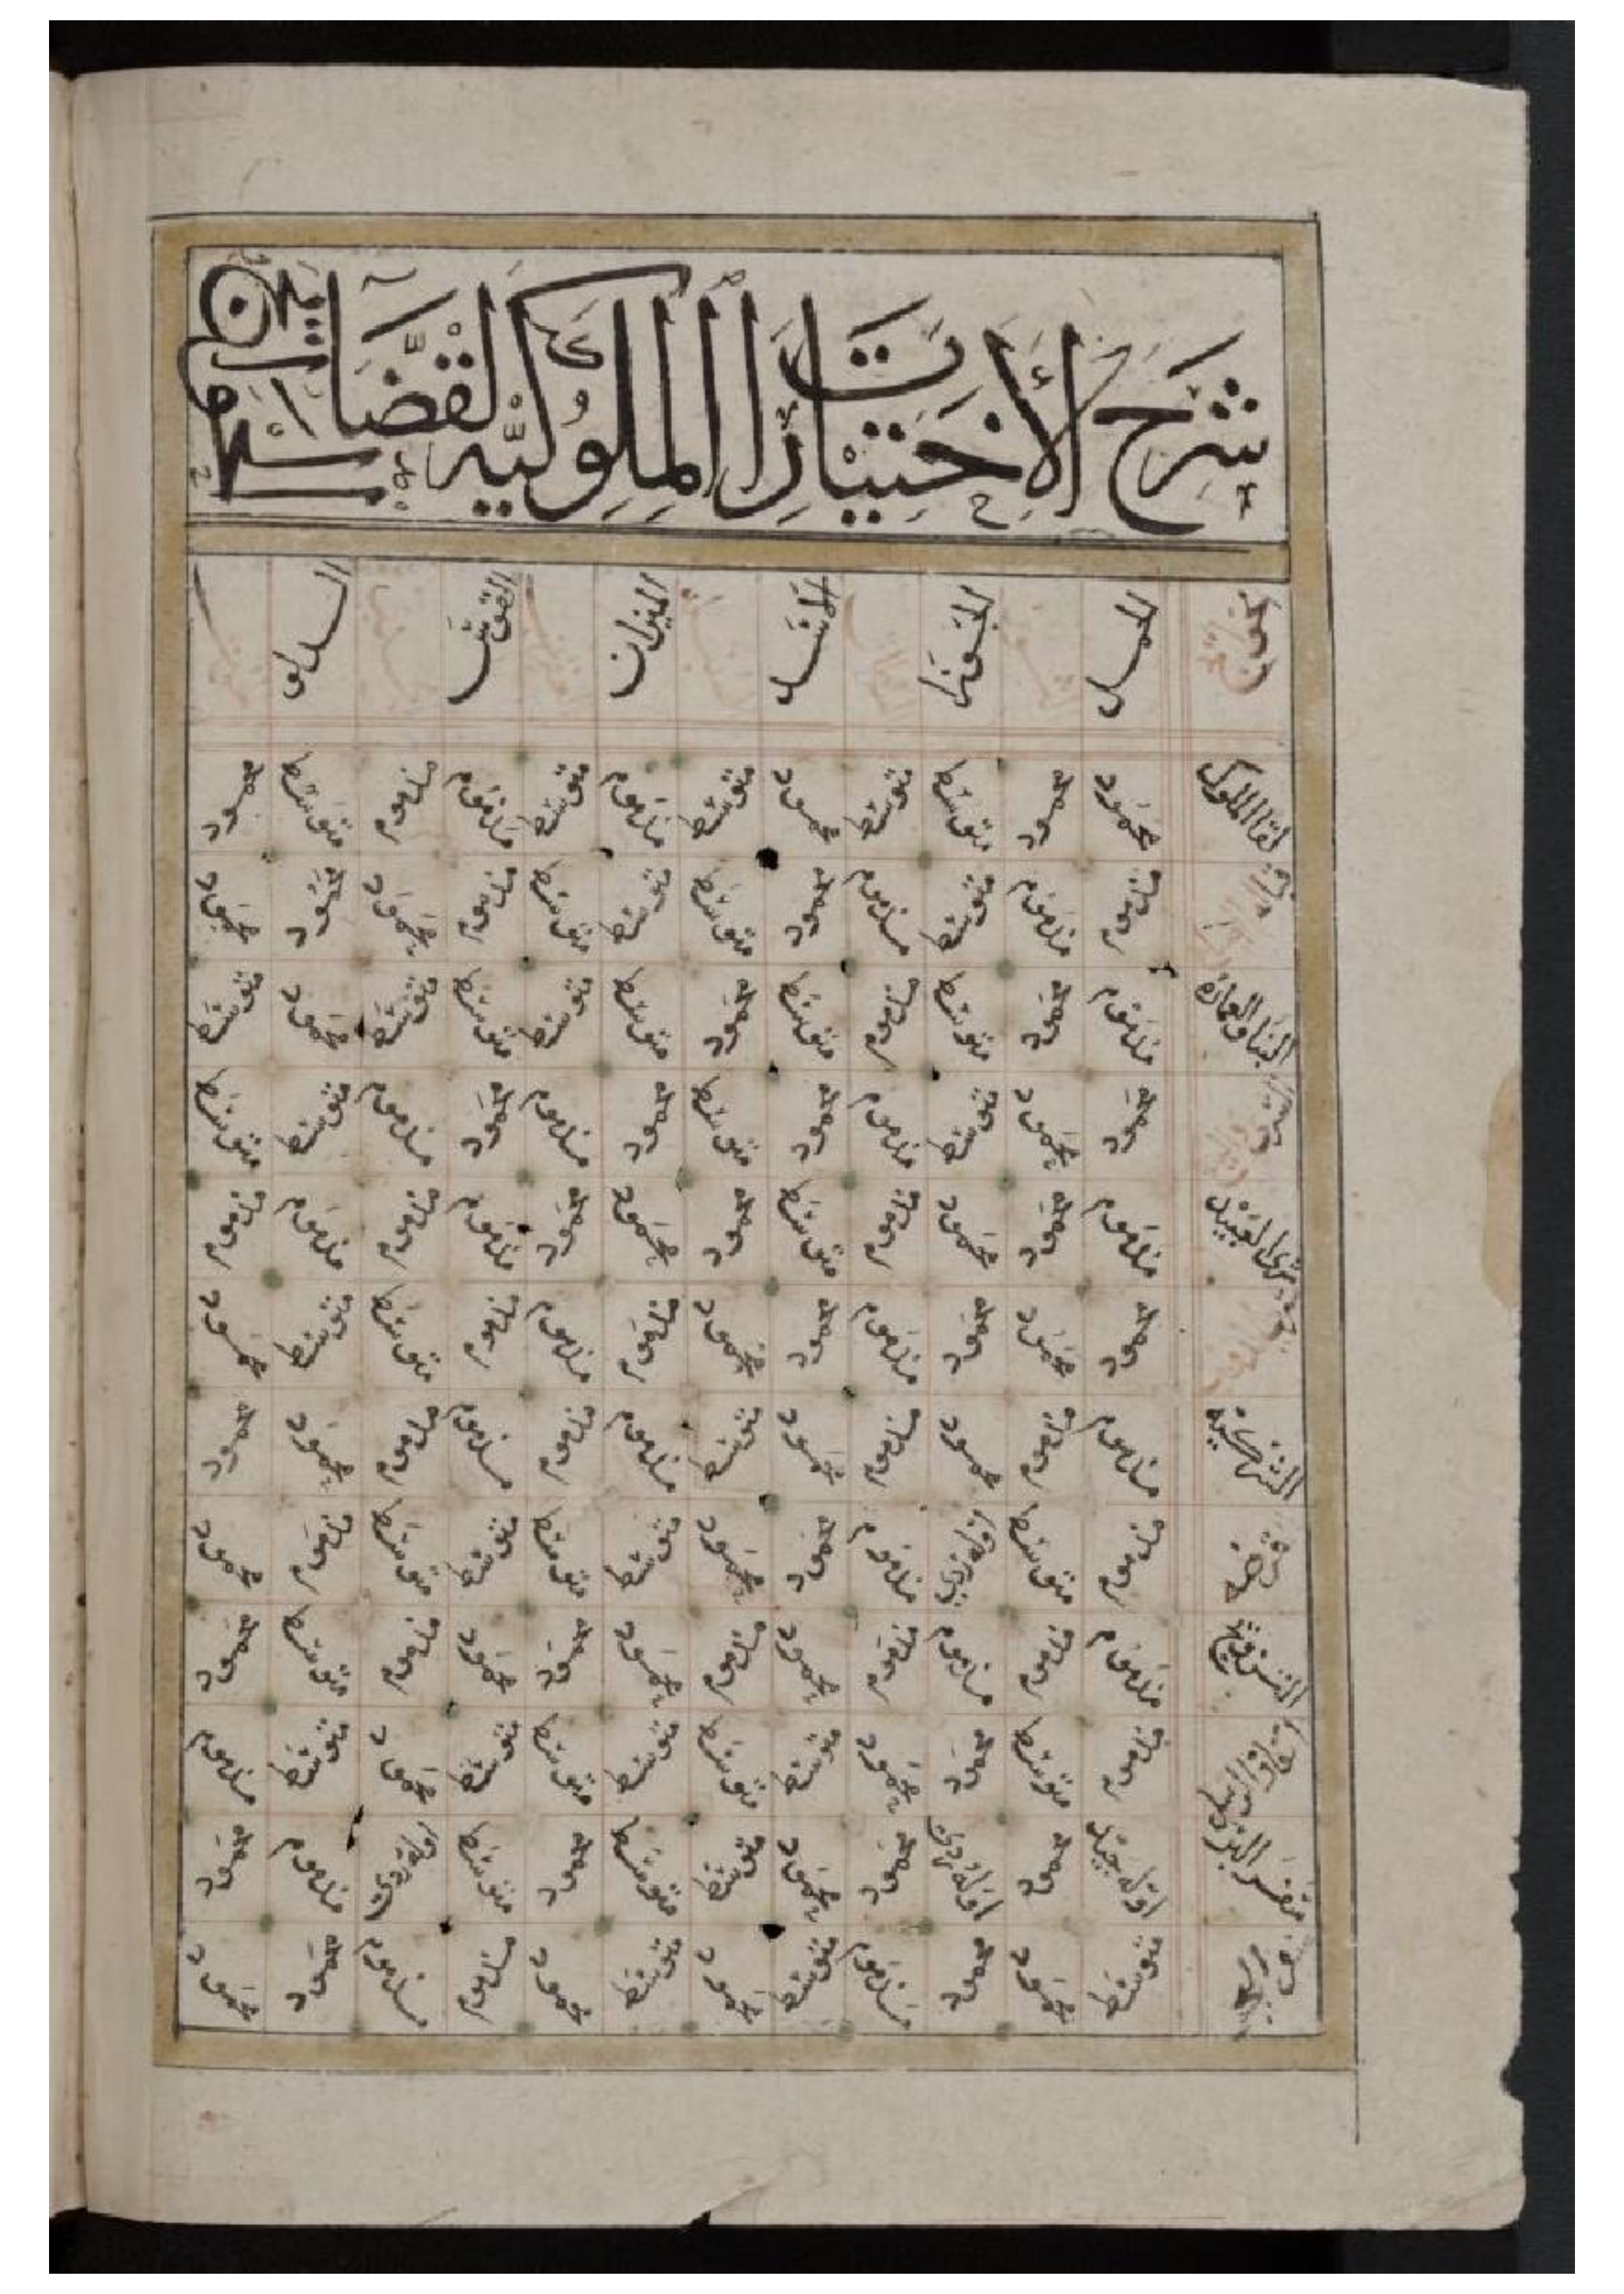 شرح الاختيارات الملوكية لقضا
الحمل الجوزا الاسد الميزان القوس
لقا الملوك محمود محمود متوسط متوسط محمود متوسط مذموم متوسط مذموم مذموم متوسط محمود
مذموم مذموم متوسط مذموم محمود متوسط متوسط متوسط مذموم محمود محمود محمود
البنا والعمارة مذموم محمود متوسط مذموم متوسط محمود متوسط متوسط متوسط متوسط محمود متوسط
محمود محمود متوسط مذموم محمود متوسط محمود مذموم محمود مذموم متوسط متوسط
شرى العبيد مذموم محمود محمود مذموم متوسط محمود محمود محمود مذموم مذموم مذموم مذموم
محمود محمود محمود مذموم محمود محمود مذموم مذموم مذموم متوسط متوسط محمود
مذموم مذموم محمود مذموم محمود متوسط مذموم مذموم مذموم مذموم محمود محمود
مذموم متوسط اوله ردي مذموم محمود محمود متوسط متوسط متوسط متوسط مذموم محمود
التزويج مذموم مذموم مذموم مذموم محمود مذموم محمود محمود محمود مذموم متوسط محمود
مذموم متوسط محمود محمود متوسط متوسط متوسط متوسط متوسط محمود متوسط مذموم
سفر البر اوله جيد محمود اوله ردي محمود محمود متوسط متوسط محمود متوسط اوله ردي مذموم محمود
متوسط محمود محمود مذموم متوسط محمود متوسط محمود مذموم مذموم محمود محمود